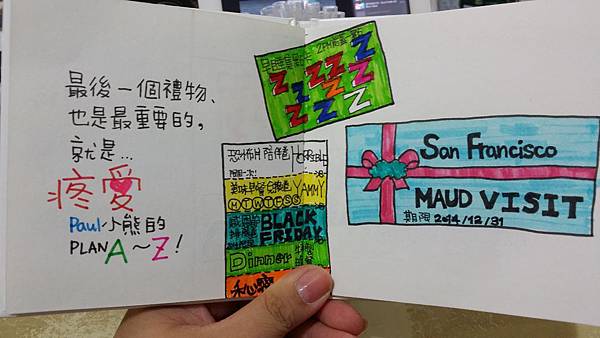 最後一個禮物、
也是最重要的,
就是...
疼愛
Paul小熊的
PLAN A～Z!
Z Z Z Z Z Z Z Z Z
恐怖片陪伴 HORRIBLE
美味早餐 YAMMY
M T W T F S S
BLACK
FRIDAY
Dinner
San Francisco
MAUD VISIT
期限 2014/12/31